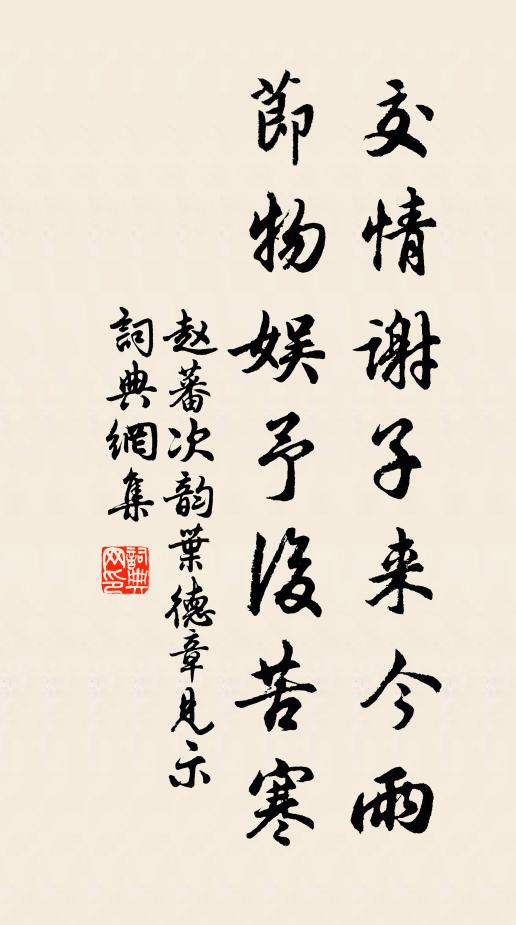 交情謝子来今雨
莭物娱予後苦寒
赵蕃次韵葉德章見示
詞典網集
詞典网印